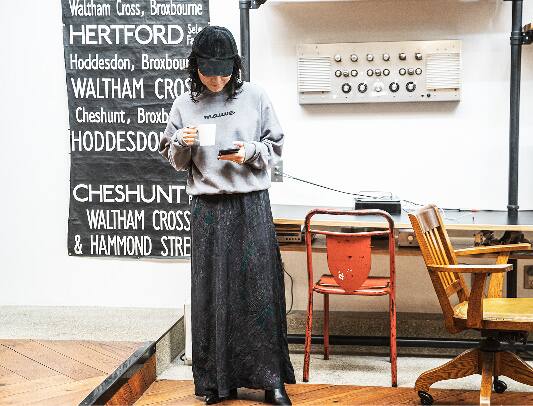 Waltham Cross, Broxbourne
HERTFORD
Hoddesdon, Broxbou
WALTHAM CROS
Cheshunt, Broxb
HODDESDON
CHESHUNT
WALTHAM CROSS
& HAMMOND STRE
mauve.